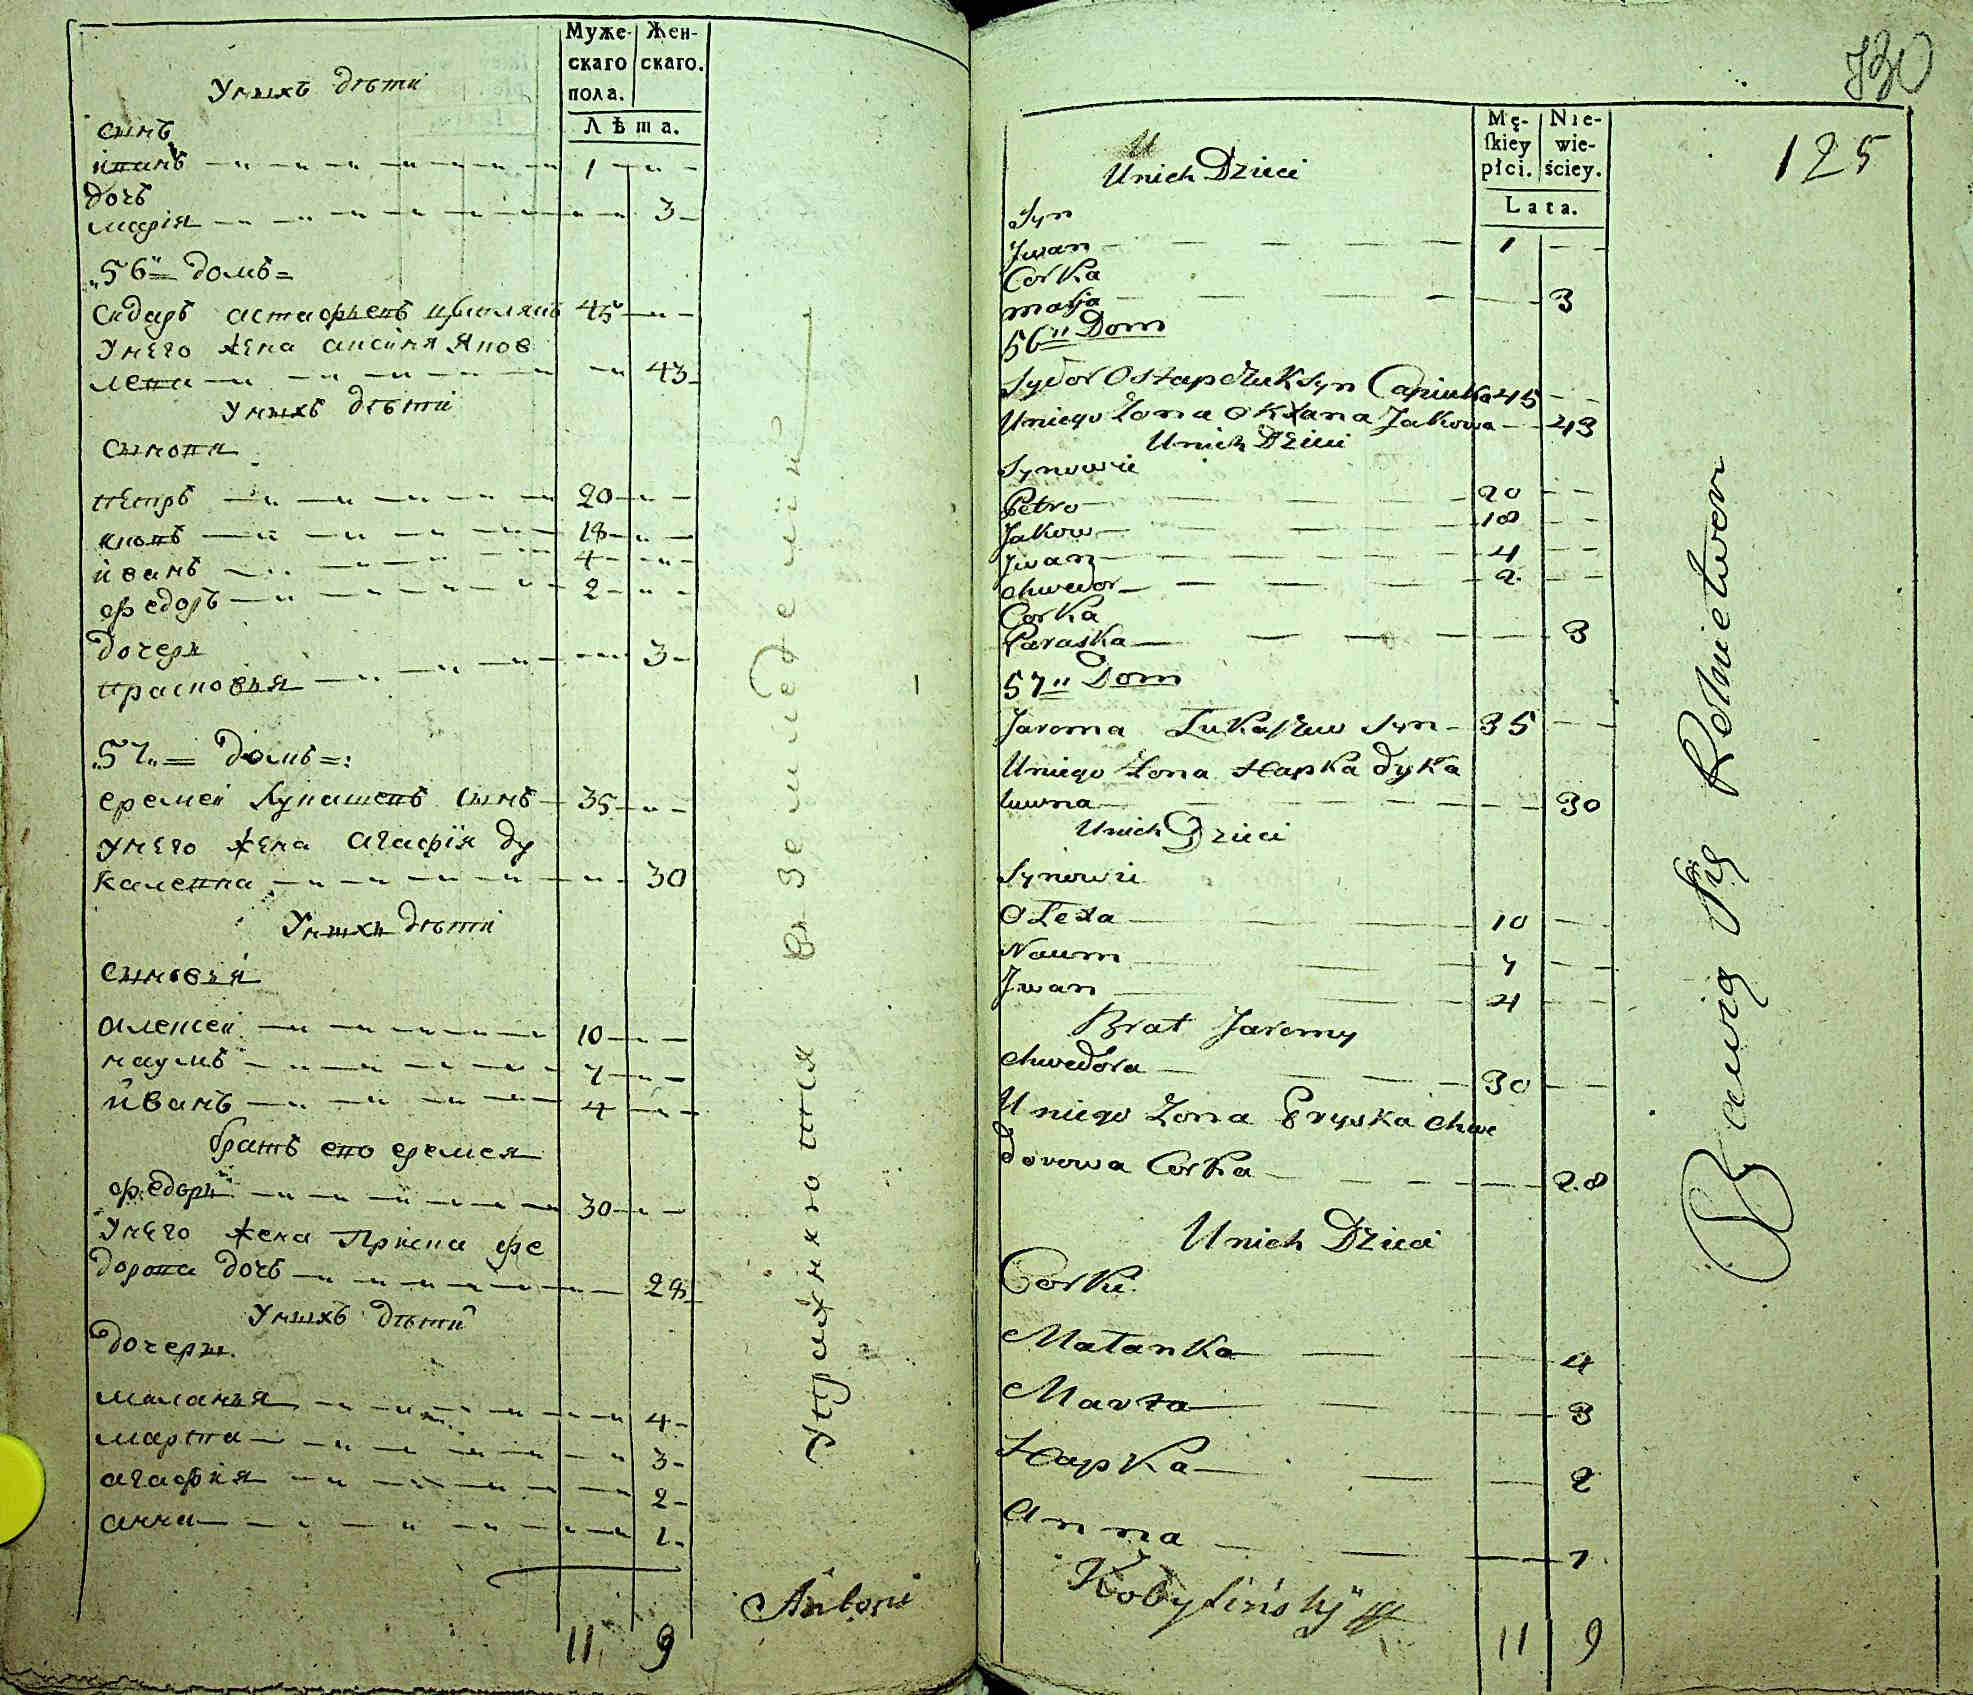 Муже- Жен-
скаго скаго.
пола.
Лѣта.
Унихъ дѣти
сынъ
иванъ 1
дочь
марія 3
„56" домъ=
сидаръ астафьевъ 45
Унего жена аксиня Яков
лева 43
Унихъ дѣти
сыновя
петръ 20
яковъ 18
иванъ 4
федоръ 2
дочери
прасковья 3
„57„ = домъ=:
еремеи лукашевъ сынъ 35
унего жена агафія ду
калевна 30
Унихъ дѣти
сыновья
алексеи 10
наумъ 7
иванъ 4
братъ ево еремея
федоръ 30
Унего жена Приска фе
дорова дочь 28
Унихъ дѣти
дочери
маланья 4
марта 3
агафия 2
анна 1
11 9
Упражняются в земледелии
Antoni
130
125
Mę- Nie-
skiey wie-
płci. ściey.
Lata.
Unich Dzieci
Syn
Jwan 1
Corka
marja 3
56" Dom
Sydor Ostapczuk Syn 45
Uniego Żona Oksana Jakowa 43
Unich Dzieci
Synowie
Petro 20
Jakow 18
Jwan 4
Chwedor 2
Corka
Paraska 3
57" Dom
Jaroma Łukaszuw Syn 35
Uniego Żona Hapka Dyka
luwna 30
Unich Dzieci
Synowie
Ołexa 10
Naum 7
Jwan 4
Brat Jaromy
Chwedora 30
Uniego Żona Pryska Chwe
dorowa Corka 28
Unich Dzieci
Corki
Małanka 4
Marta 3
Hapka 2
Anna 1
Kobyliński
11 9
Bawią się Rolnictwem